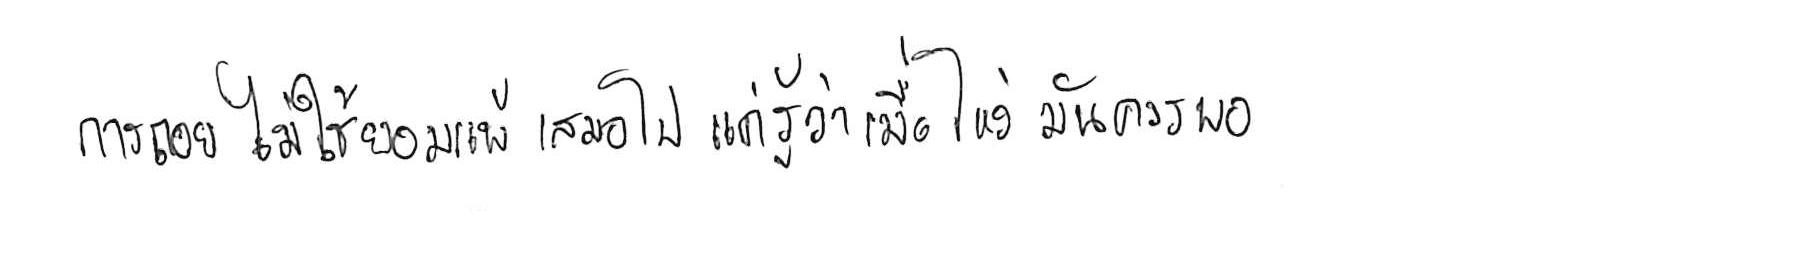 การถอย ไม่ใช้ยอมแพ้ เสมอไป แค่รู้ว่าเมื่อไหร่ มันควรพอ